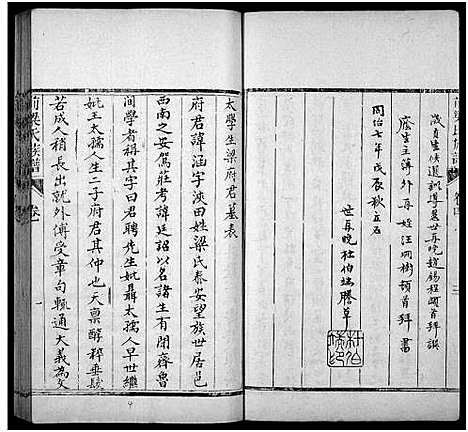 歲貢生候選訓導世再晚趙錫程頓首拜譔
廩生主簿外再姪汪炳樹頓首拜書
同治七年戊辰秋五五
世再晚杜伯瑞謄草
太學生梁府君墓表
府君諱涵字泱田姓梁氏泰安望族世居邑
西南之安駕莊考諱廷詔以名諸生有聞齊魯
間學者稱其字曰君聘先生妣聶太孺人早世繼
妣王太孺人生二子府君其仲也天稟醇粹垂髫
若成人稍長出就外傅受章句輒通大義為文
前梁氏族譜
卷一
一